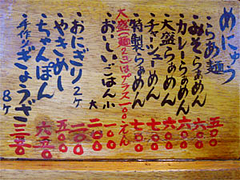 めにゅう
らぁ麺 五〇〇
みそらぁめん 六〇〇
カレーらぁめん 六〇〇
大盛らぁめん 六〇〇
チャーシューめん 七〇〇
特製らぁめん 七〇〇
大盛(麺2コ)はプラス一〇〇えん
おいしいごはん 小 一〇〇
大 二〇〇
おにぎり2ヶ 二〇〇
やきめし 五〇〇
ちゃんぽん 六五〇
手作りぎょうざ 8ヶ 三五〇